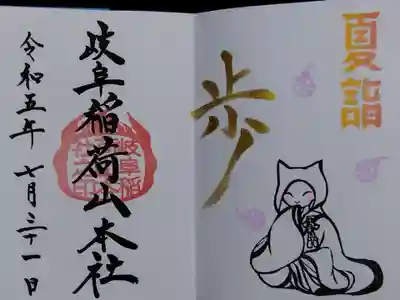 夏詣
歩
岐阜稲荷山本社
令和五年 七月三十一日